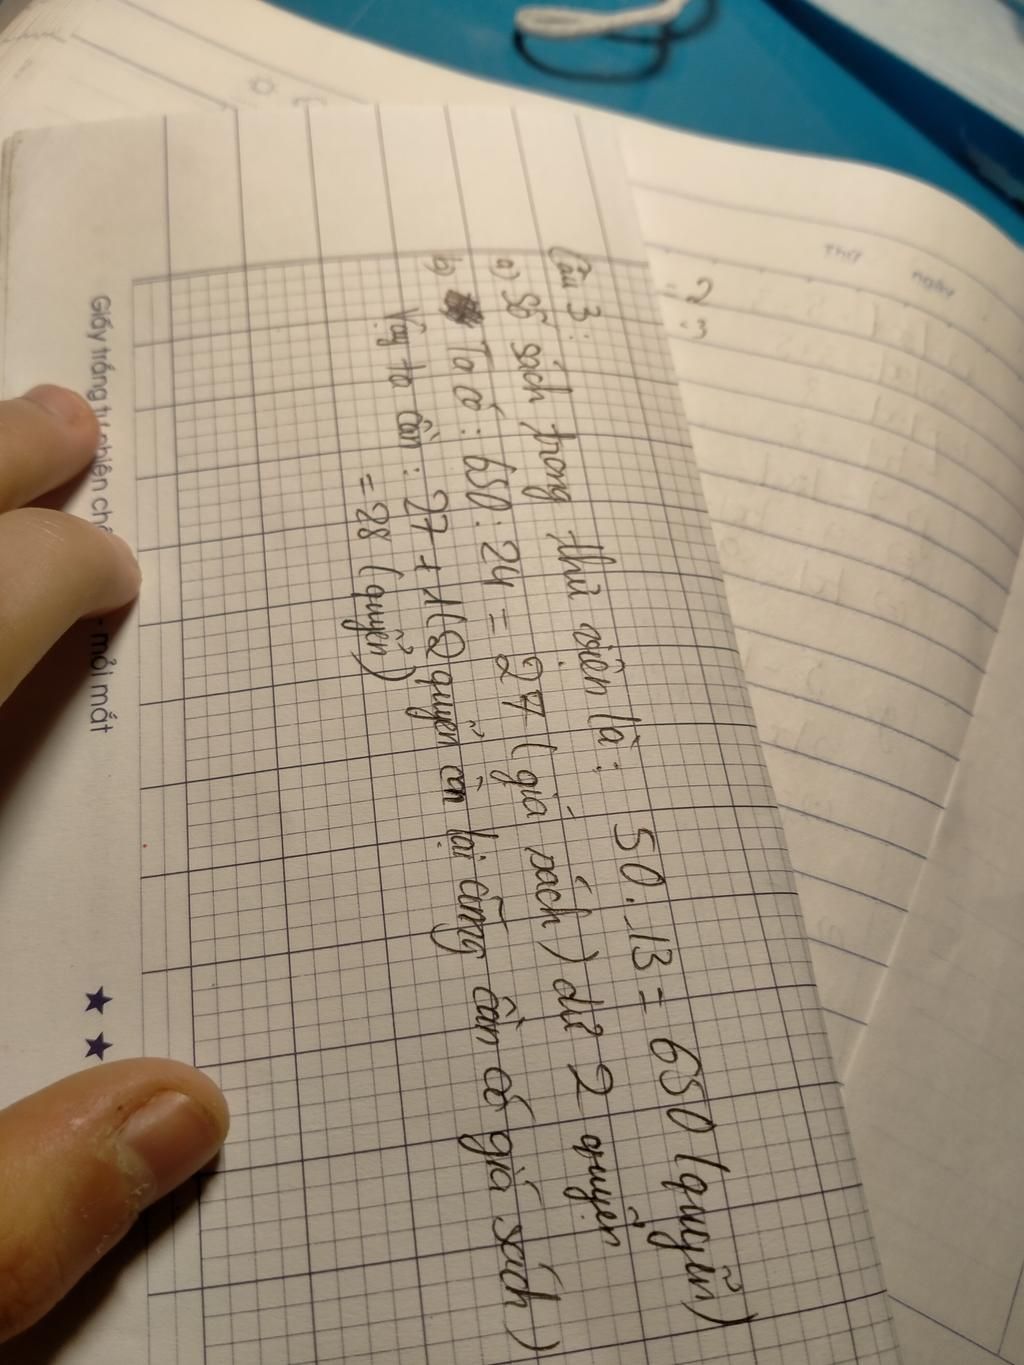 Thứ ngày
= 2
= 3
Câu 3:
a) Số sách trong thư viện là: 50.13 = 650 (quyển)
b) Ta có: 650:24 = 27 (giá sách) dư 2 quyển
Vậy ta cần: 27 + 1 (2 quyển còn lại cũng cần có giá sách)
= 28 (quyển)
Giấy trắng tự nhiên mỏi mắt